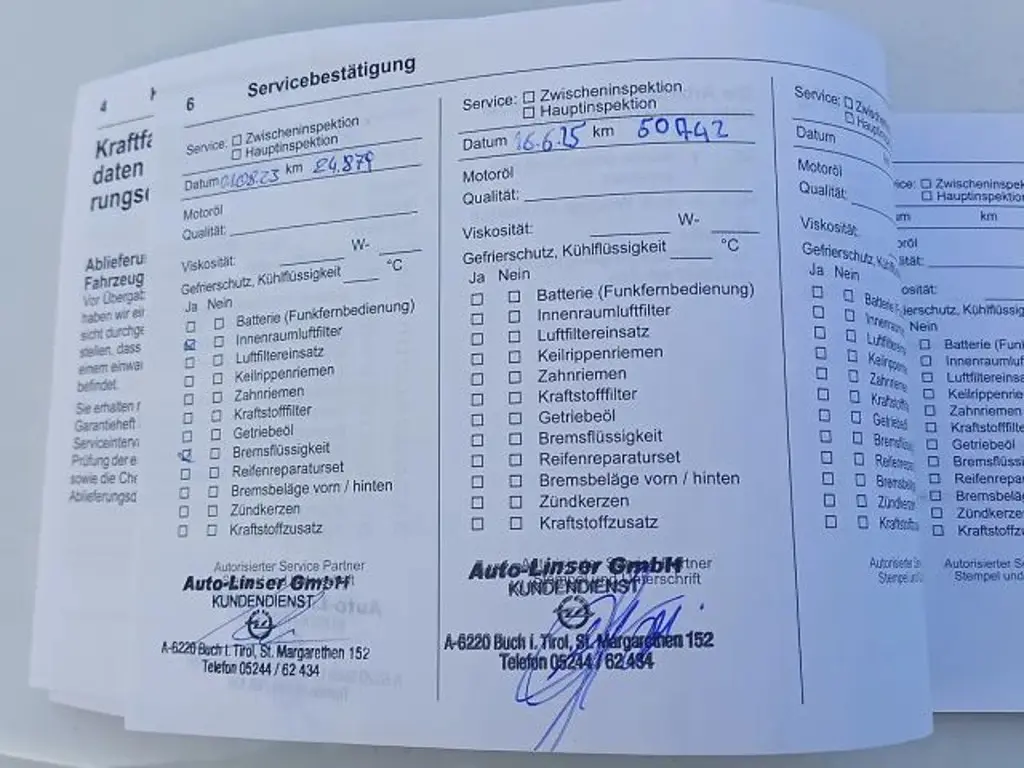 4
Kraftfa
daten
rungsc
Ablieferu
Fahrzeug
Vor Übergab
haben wir ei
sicht durchge
stellen, dass
einem einwa
befindet.
Sie erhalten
Garantieheft
Serviceinterv
Prüfung der e
sowie die Che
Ablieferungsd
6 Servicebestätigung
Service: ☐ Zwischeninspektion
☐ Hauptinspektion
Datum 01.08.23 km 24.879
Motoröl
Qualität:
Viskosität: W-
Gefrierschutz, Kühlflüssigkeit °C
Ja Nein
☐ ☐ Batterie (Funkfernbedienung)
☑ ☐ Innenraumluftfilter
☐ ☐ Luftfiltereinsatz
☐ ☐ Keilrippenriemen
☐ ☐ Zahnriemen
☐ ☐ Kraftstofffilter
☐ ☐ Getriebeöl
☑ ☐ Bremsflüssigkeit
☐ ☐ Reifenreparaturset
☐ ☐ Bremsbeläge vorn / hinten
☐ ☐ Zündkerzen
☐ ☐ Kraftstoffzusatz
Autorisierter Service Partner
Auto-Linser GmbH
KUNDENDIENST
A-6220 Buch i. Tirol, St. Margarethen 152
Telefon 05244 / 62 434
Service: ☐ Zwischeninspektion
☐ Hauptinspektion
Datum 16.6.25 km 50742
Motoröl
Qualität:
Viskosität: W-
Gefrierschutz, Kühlflüssigkeit °C
Ja Nein
☐ ☐ Batterie (Funkfernbedienung)
☐ ☐ Innenraumluftfilter
☐ ☐ Luftfiltereinsatz
☐ ☐ Keilrippenriemen
☐ ☐ Zahnriemen
☐ ☐ Kraftstofffilter
☐ ☐ Getriebeöl
☐ ☐ Bremsflüssigkeit
☐ ☐ Reifenreparaturset
☐ ☐ Bremsbeläge vorn / hinten
☐ ☐ Zündkerzen
☐ ☐ Kraftstoffzusatz
Autorisierter Service Partner
Stempel und Unterschrift
Auto-Linser GmbH
KUNDENDIENST
A-6220 Buch i. Tirol, St. Margarethen 152
Telefon 05244 / 62 434
Service: ☐ Zwische
☐ Haupti
Datum
Motoröl
Qualität:
Viskosität:
Gefrierschutz, Kühlflüs
Ja Nein
☐ ☐ Batterie
☐ ☐ Innenrau
☐ ☐ Luftfilte
☐ ☐ Keilrippe
☐ ☐ Zahnrieme
☐ ☐ Kraftstoff
☐ ☐ Getriebeö
☐ ☐ Bremsflü
☐ ☐ Reifenrepa
☐ ☐ Bremsbelä
☐ ☐ Zündkerz
☐ ☐ Kraftstoff
Autorisierter Se
Stempel und
ice: ☐ Zwischeninspek
☐ Hauptinspektion
um km
oröl
lität:
osität:
rierschutz, Kühlflüssig
Nein
☐ Batterie (Funk
☐ Innenraumluft
☐ Luftfiltereinsa
☐ Keilrippenrie
☐ Zahnriemen
☐ Kraftstofffilte
☐ Getriebeöl
☐ Bremsflüssi
☐ Reifenrepar
☐ Bremsbeläg
☐ Zündkerzen
☐ Kraftstoffzu
Autorisierter Ser
Stempel und